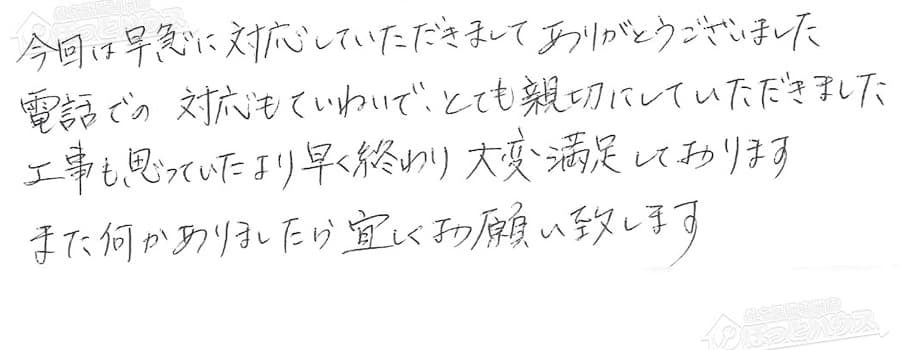 今回は早急に対応していただきまして ありがとうございました
電話での 対応もていねいで、とても親切にしていただきました
工事も思っていたより早く終わり 大変満足しております
また何かありましたら 宜しくお願い致します
ほっとハウス